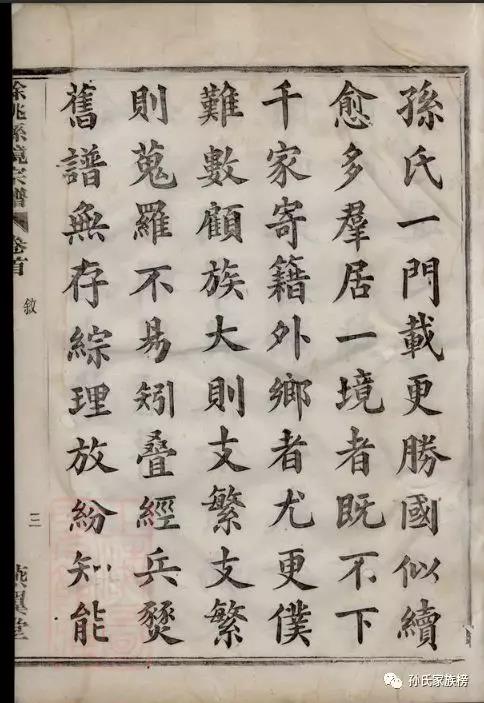 孫氏一門載更勝國似續
愈多羣居一境者既不下
千家寄籍外鄉者尤更僕
難數顧族大則支繁支繁
則蒐羅不易矧疊經兵燹
舊譜無存綜理放紛知能
餘姚孫境宗譜 卷首 敘 三 燕翼堂
孙氏家族榜